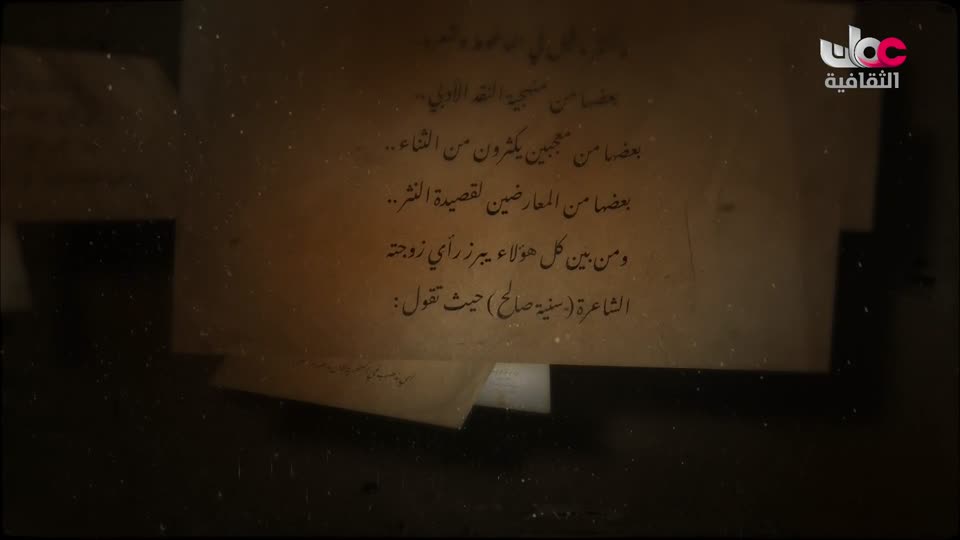 عمان
الثقافية
بعضها من منهجية النقد الأدبي..
بعضها من معجبين يكثرون من الثناء..
بعضها من المعارضين لقصيدة النثر..
ومن بين كل هؤلاء يبرز رأي زوجته
الشاعرة (سنية صالح) حيث تقول: